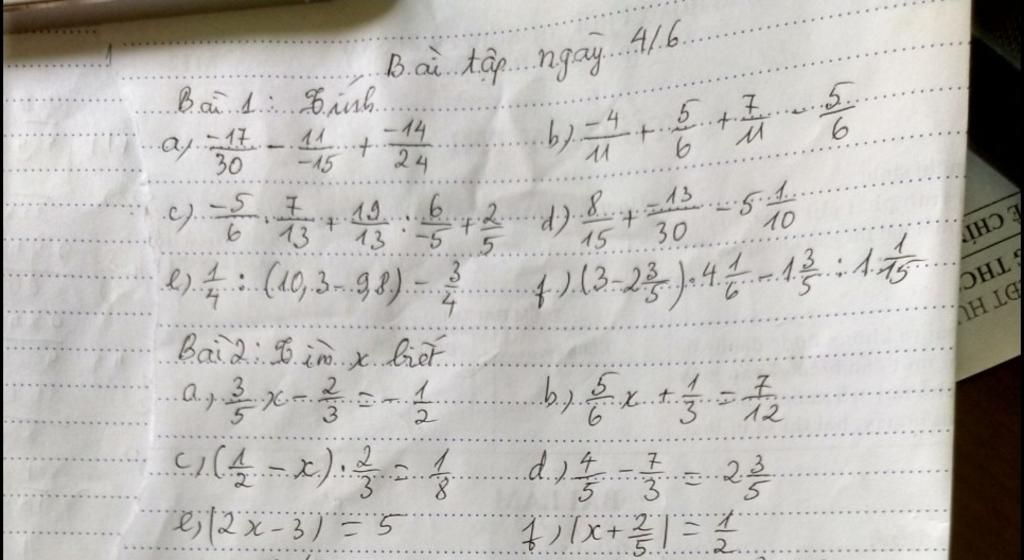 Bài tập ngày 4/6
Bài 1: Tính
a) -17/30 - 11/-15 + -14/24 b) -4/11 + 5/6 + 7/11 - 5/6
c) -5/6 . 7/13 + 19/13 . 6/-5 + 2/5 d) 8/15 + -13/30 - 5 1/10
e) 1/4 : (10,3 - 9,8) - 3/4 f) (3 - 2 3/5) . 4 1/6 - 1 3/5 : 1 1/15
Bài 2: Tìm x biết
a) 3/5 x - 2/3 = - 1/2 b) 5/6 x + 1/3 = 7/12
c) (1/2 - x) . 2/3 = 1/8 d) 4/5 - 7/3 = 2 3/5
e) |2x - 3| = 5 f) |x + 2/5| = 1/2